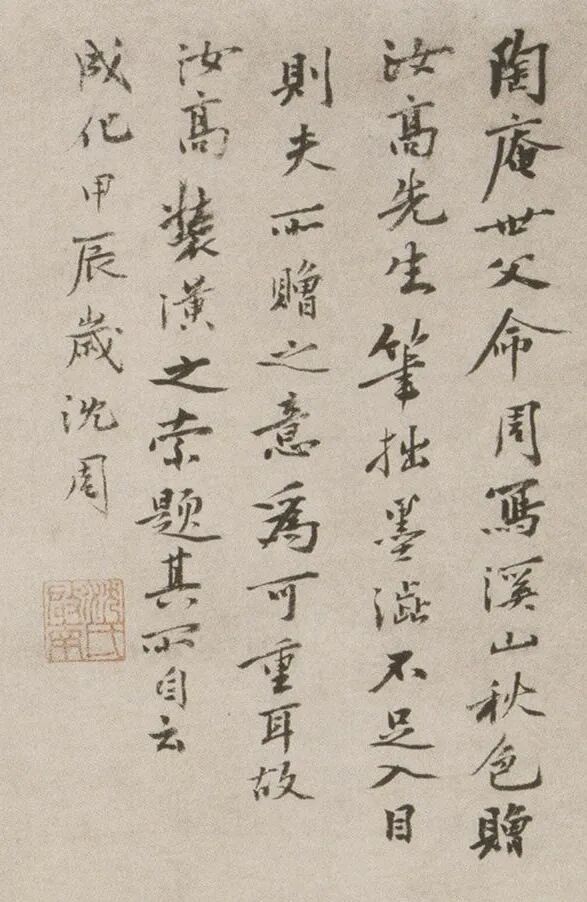 陶庵世父命周寫溪山秋色贈
汝高先生筆拙墨澁不足入目
則夫所贈之意為可重耳故
汝高裝潢之索題其所自云
成化甲辰歲沈周